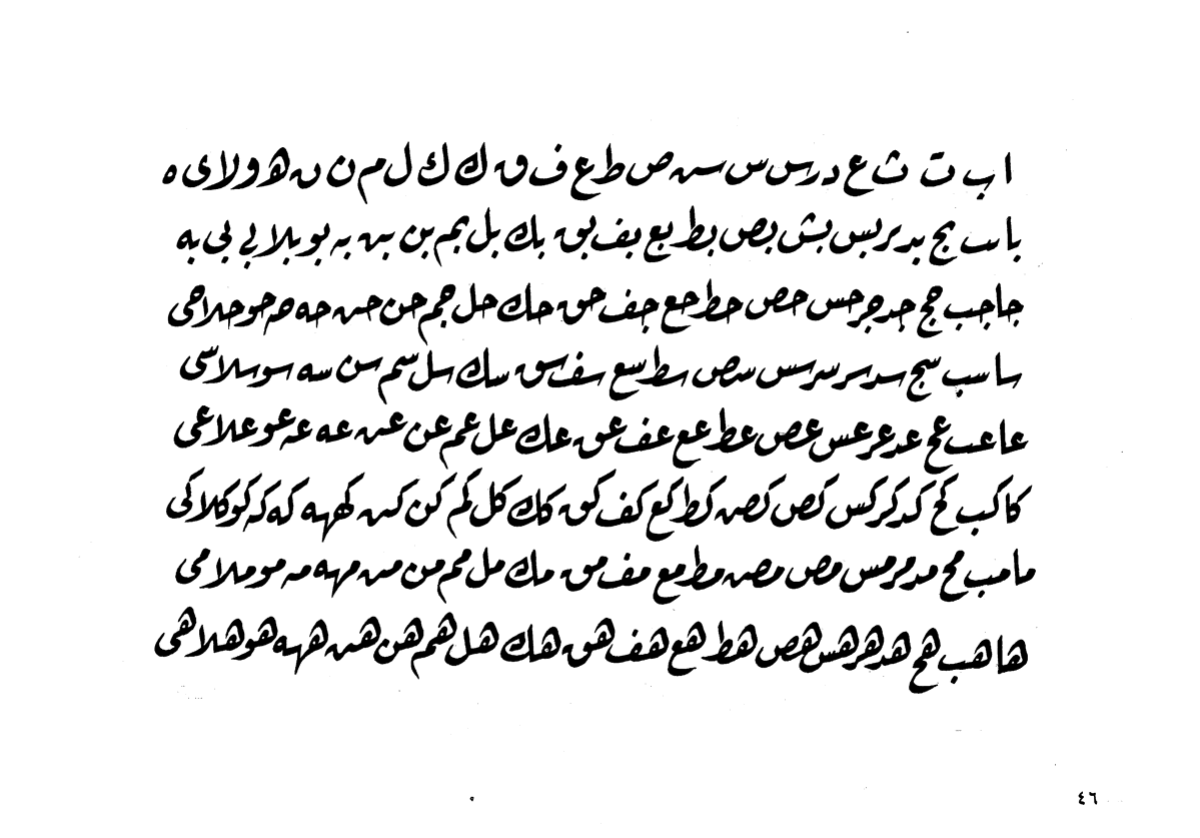 ا ب ت ث ع د ر س س س ص ط ع ف ق ك ك ل م ن ن ه و لا ى ه
با ب بج بد بر بس بش بص بط بع بف بق بك بل بم بن بن به بو بلا بي بى به
حا جب حج جد حر حس حص حط حع جف حق حك حل حم حن حن حه حه حو حلا حى
سا سب سج سد سر سر سس سص سط سع سف سق سك سل سم سن سه سو سلا سى
عا عب عج عد عر عس عص عط عع عف عق عك عل عم عن عن عه عه عو علا عى
كا كب كج كد كر كس كص كص كط كع كف كق كك كل كم كن كن كهه كه كه كو كلا كى
ما مب مج مد مر مس مص مص مط مع مف مق مك مل مم من من مهه مه مو ملا مى
ها هب هج هد هر هس هص هط هع هف هق هك هل هم هن هن ههه هو هلا هى
٤٦